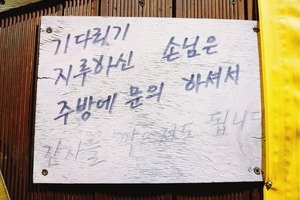 기다림기
지루하신 손님은
주방에 문의 하셔서
감자를 깎으셔도 됩니다